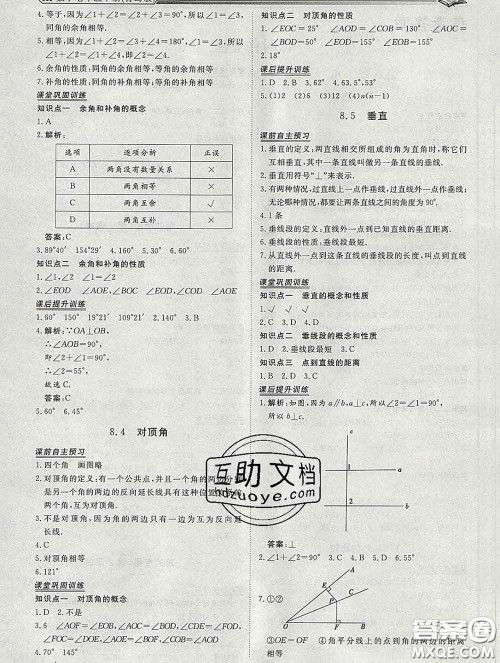 5.∠1+∠2=90° ∠1+∠3=90° ∠2=∠3
同角的余角相等
∠1+∠2=180° ∠1+∠3=180° ∠2=∠3
同角的补角相等
6.余角的性质:同角或等角的余角相等.
课堂巩固训练
知识点一 余角和补角的概念
1.A
2.解析:
选项 选项分析 正误
A 两角没有数量关系 ×
B 两角相等 ×
C 两角互余 √
D 两角互补 ×
答案:C
3.89°40′ 154°29′ 4.160° 5.30° 6.50°
知识点二 余角和补角的性质
1.∠1,∠2 ∠1=∠2
2.∠EOD ∠AOC,∠BOF ∠EOF ∠COE=∠AOE
课后提升训练
1.70°50′ 150° 19°21′ 109°21′ 2.140° 3.B
4.解析:∵OA⊥OB,
∴∠AOB=90°,
即∠2+∠1=90°,
∴∠2=55°.
故选C.
答案:C
5.60° 6.45°
8.4 对顶角
课前自主预习
1.四个角 画图略
2.对顶角的定义:有一个公共点,并且一个角的两边分
另一个角的两边的反向延长线具有这种位置
角,互为对顶角.
3.不是对顶角,因为两个角只有一边互为反向延
长线.
4.C
5.对顶角相等
6.121°
课堂巩固训练
知识点一 对顶角的概念
1.D 2.不是
3.6 ∠AOC=∠BOD ∠AOF=∠BOE ∠DOF=
∠COE ∠AOD=∠BOC ∠AOE=∠BOF ∠COF
=∠DOE
4.70° 145°
知识点二 对顶角的性质
1.∠EOC=25° ∠DOF=25° 2.90°
3.∠BOD=∠AOC=50° 4.145° 5.B
6.D 7.B 8.18°
课后提升训练
1.D 2.B 3.62° 4.63.5° 53°
5.(1)2 (2)6 (3)12 (4)n(n−1)
8.5 垂直
课前自主预习
1.垂直的定义:两直线相交所组成的角为直角时,称它们
互相垂直,其中一条直线叫做另一条直线的垂线.
2.垂直用符号“⊥”来表示.
3.有两种情况,过直线上一点作垂线,过直线外一点作垂线;
无论哪种情况,都要让两条直线的夹角为90°.
4.1条
5.垂线段的定义:直线外一点到垂足之间的线段.
垂线段的性质:垂线段最短.
6.从直线外一点到这条直线的垂线段的长度叫点到直线
的距离.
课堂巩固训练
知识点一 垂直的概念和性质
1.√ √ √
2.C 3.D 4.C
知识点二 垂线段的概念和性质
1.D 2.垂线段最短 3.B
知识点三 点到直线的距离
1.B 2.D
课后提升训练
1.解析:如图,因为a∥b,a⊥c,所以∠1=∠2=90°,
所以b⊥c.
c
1
a
2
b
答案:⊥
2.C 3.B 4.D 5.B 6.55°
7.①②
A
E
P
O
F
B
③OE=OF ④角平分线上的点到角的两边的距离
相等
互助文档
hdzuoye.com
答案圈
MXQE.COM